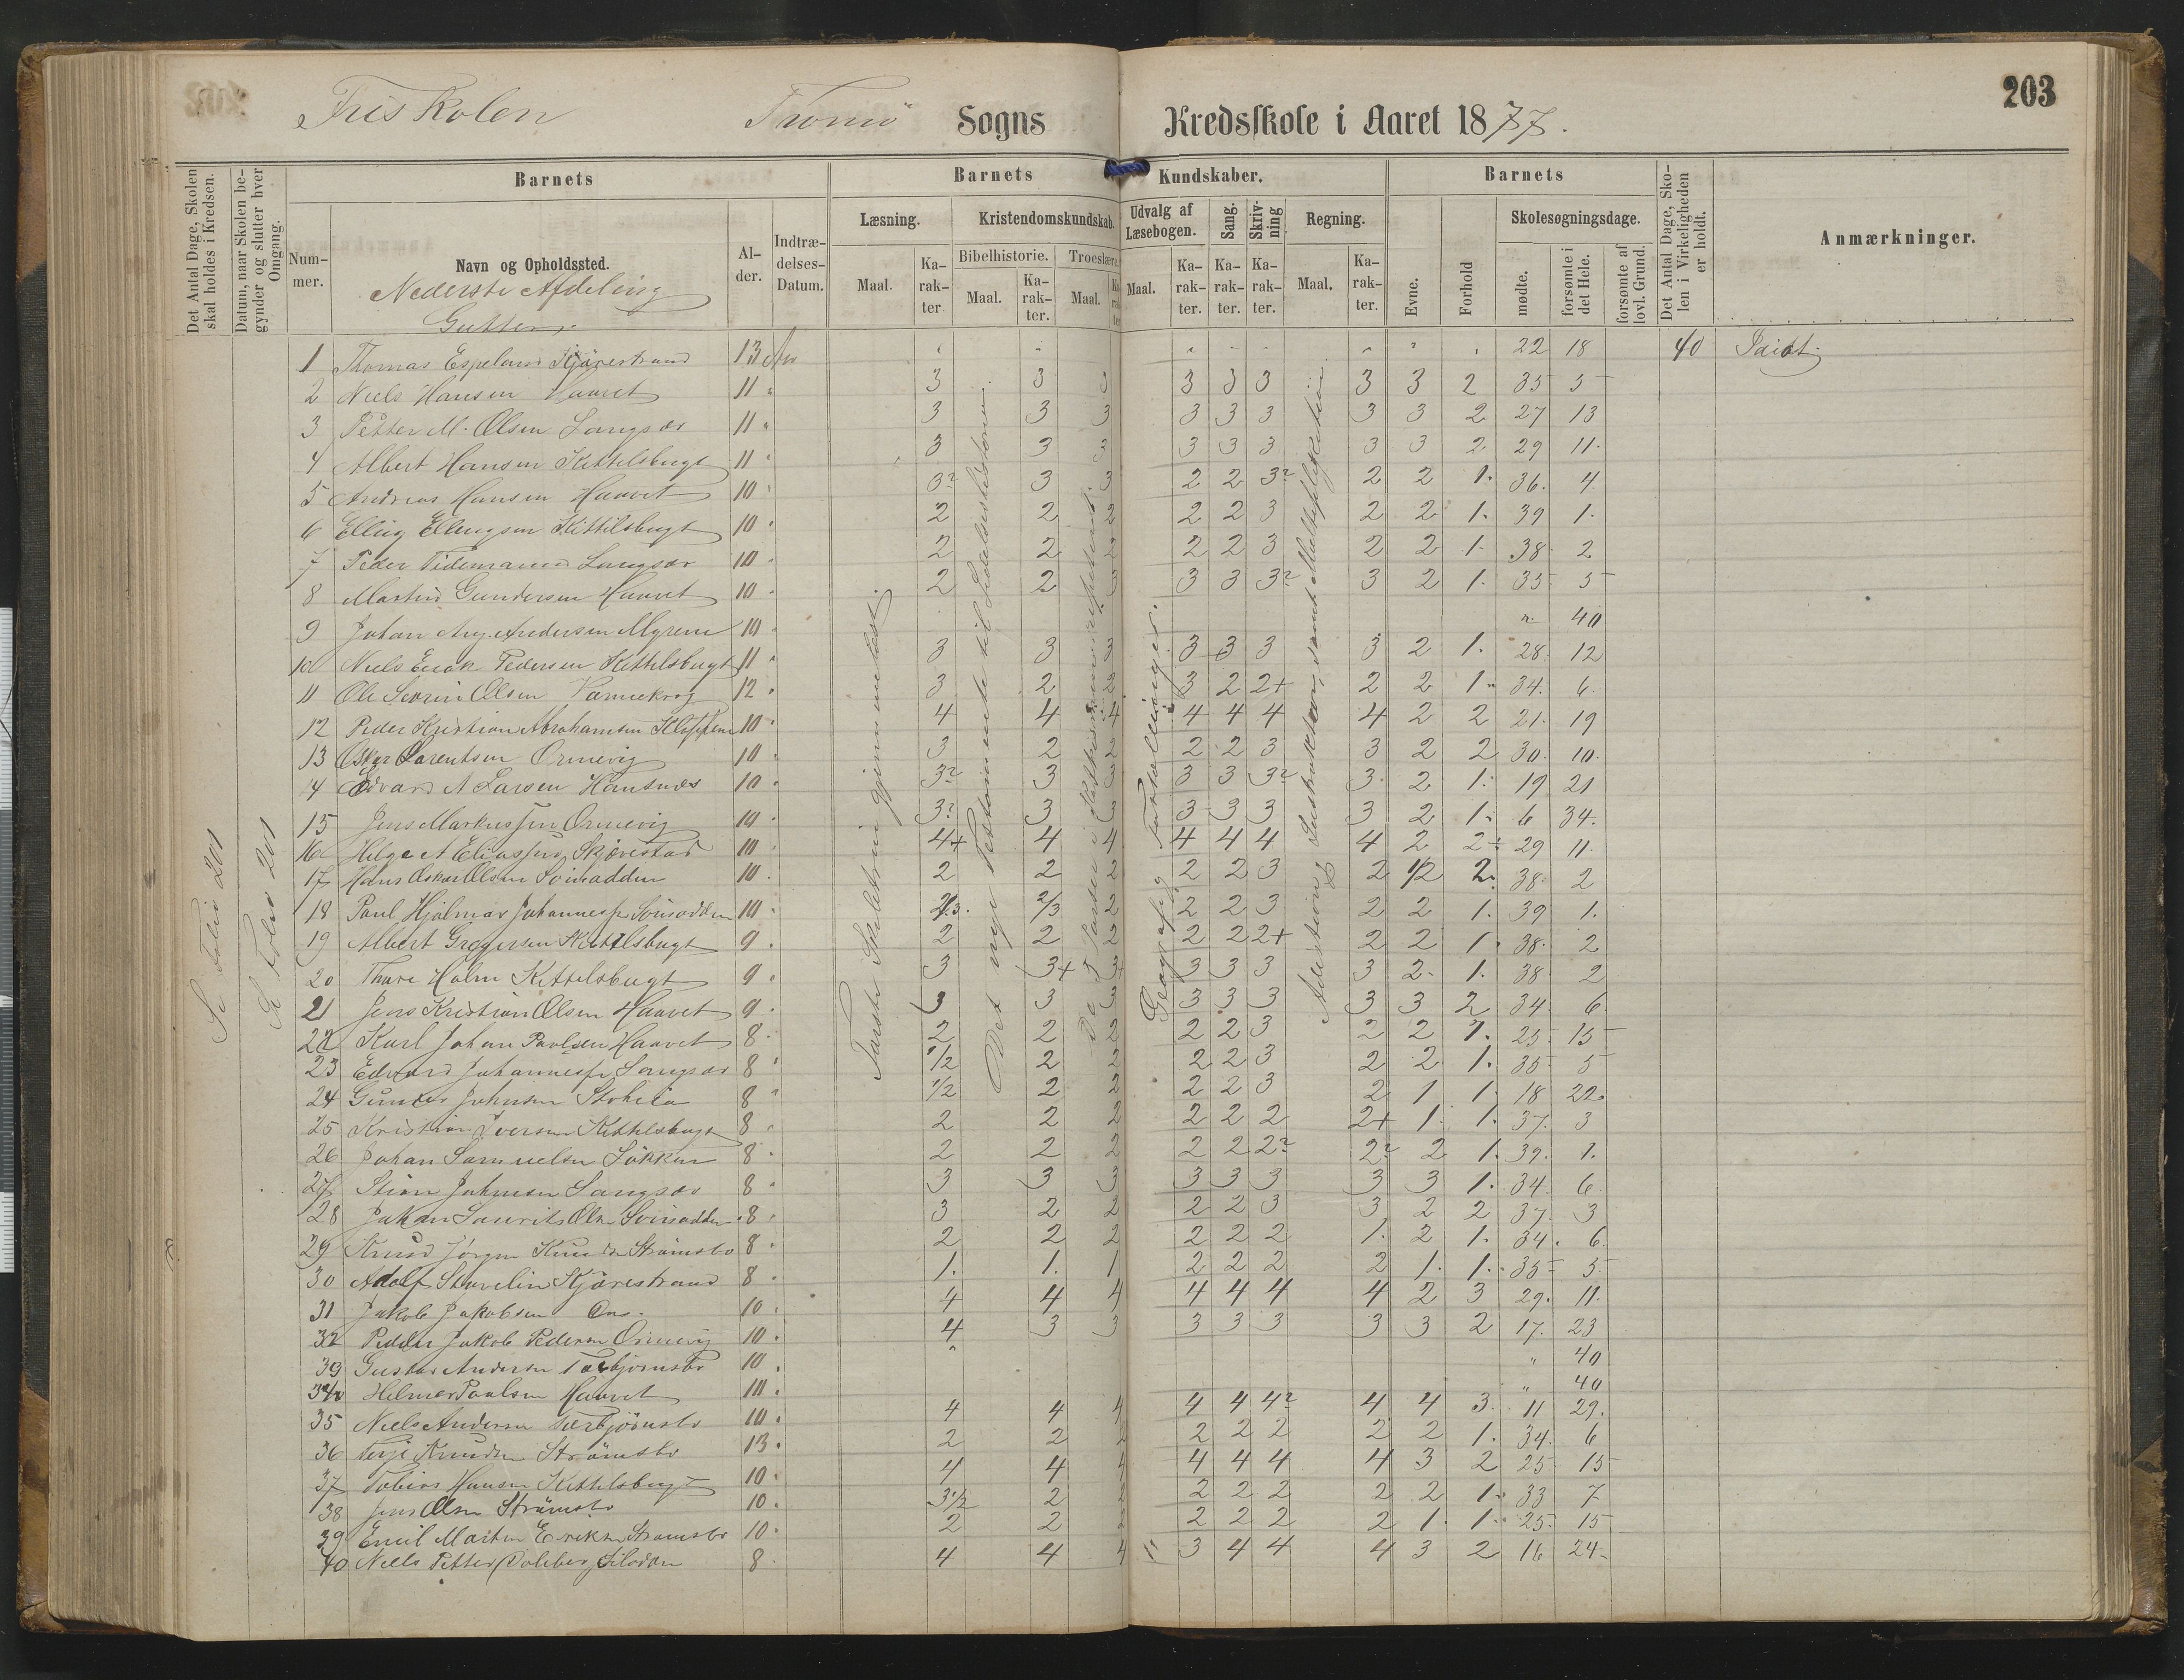 203
Friskolen Tromö Sogns Kredsskole i Aaret 1877.
Det Antal Dage, Skolen skal holdes i Kredsen.
Datum, naar Skolen begynder og slutter hver Omgang.
Barnets
Barnets Kundskaber.
Barnets
Det Antal Dage, Skolen i Virkeligheden er holdt.
Anmærkninger.
Nummer.
Navn og Opholdssted.
Alder.
Indtrædelses-Datum.
Læsning.
Kristendomskundskab.
Udvalg af Læsebogen.
Sang.
Skrivning
Regning.
Evne.
Forhold
Skolesøgningsdage.
Bibelhistorie.
Troeslære.
Maal.
Karakter.
mødte.
forsømte i det Hele.
forsømte af lovl. Grund.
Nederste Afdeling
Gutter.
Se Folio 201
Se Folio 201
Det nye Testamente til Lidelseshistorien.
1 Thomas Espeland Kjärestrand 13 22 18 40 Idiot.
2 Niels Hansen Haavet 11 3 3 3 3 3 3 3 3 2 35 5
3 Petter M. Olsen Langsær 11 3 3 3 3 3 3 3 3 2 27 13
4 Albert Hansen Kittelsbugt 11 3 3 3 3 3 3 3 3 2 29 11.
5 Andreas Hansen Haavet 10 3? 3 3 2 2 3? 2 2 1. 36. 4
6 Elling Ellingsen Kittilsbugt 10 2 2 2 2 2 3 2 2 1. 39 1.
7 Peder Tidemand Langsær 10 2 2 2 2 2 3 2 2 1. 38 2
8 Martin Gundersen Haavet 10 2 2 3 3 3 3? 3 2 1. 35 5
9 Johan Aug. Andersen Myrene 10 " 40
10 Niels Enok Pedersen Kittelsbugt 11 3 3 3 3 3 3 3 2 1. 28 12
11 Ole Severin Olsen 12 3 2 2 3 2 2+ 2 2 1. 34. 6
12 Peder Kristian Abrahamsen 10 4 4 4 4 4 4 4 2 2 21. 19
13 Oskar Larentsen Ormevig 10 3 2 2 2 2 3 3 2 2 30. 10.
14 Edvard A Larsen 10 3? 3 3 3 3 3? 3 2 1. 19 21
15 Jens Markussen Ormevig 10 3? 3 3 3 3 3 3 2 1. 6 34.
16 Helge A Eliassen Skjærestad 10 4+ 4 4 4 4 4 4 2 2 29 11
17 Hans Oskar Olsen Svinodden 10 2 2 2 2 2 3 2 1/2 2 38 2
18 Paul Hjalmar Johannesen Svinodden 10 2/3. 2/3 2 2 2 3 2 2 1. 39 1.
19 Albert Gregersen Kittelsbugt 9 2 2 2 2 2 2+ 2 2 1 38 2
20 Thore Holm Kittelsbugt 9 3 3+ 3+ 3 3 3 3 2 1. 38 2
21 Jens Kristian Olsen Haavet 9 3 3 3 3 3 3 3 3 2 34 6
22 Karl Johan Paulsen Haavet 8 2 2 2 2 2 3 2 2 1. 25 15
23 Edvard Johannesen Langsær 8 1/2 2 2 2 2 3 2 2 1. 35 5
24 Gunder Johnsen 8 1/2 2 2 2 2 3 2 1 1 18 22.
25 Kristian Iversen Kittelsbugt 8 2 2 2 2 2 2 2+ 1. 1. 37. 3
26 Johan Samuelsen Løkken 8 2 2 2 2 2 2? 2? 2 1. 39. 1.
27 Stian Johnsen Langsær 8 3 3 3 3 3 3 3 3 1. 34 6
28 Johan Laurits Olsn Svinodden 8 3 2 2 2 2 3 3 2 2 37. 3
29 Knud Jörgen Knudsen Strömsbo 8 2 2 2 2 2 2 1. 2 1. 34. 6.
30 Adolf Stavelin Kjärestrand 8 1. 1. 1 2 2 2 2 1. 1. 35 5
31 Jakob Jakobsen 10 4 4 4 4 4 4 4 2 3 29. 11.
32 Peder Jakob Pedersen Ormevig 10 4 3 3 3 3 3 3 3 2 17. 23
33 Gustav Andersen Torbjörnsbo 10 " 40
34 Helmer Paulsen Haavet 10 " 40
35 Niels Andersen Torbjörnsbo 10 4 4 4 4 4 4? 4 4 3 11 29.
36 Terje Knudsen Strömsbo 13 2 2 2 2 2 2 2 2 1. 34. 6
37 Tobias Hansen Kittelsbugt 10 4 4 4 4 4 4 4 3 2 25 15
38 Jens Olsen Strömsbo 10 3 1/2 2 2 2 2 2 2 2 1. 33 7
39 Emil Martin Eriksn Strømsbo 10 2 2 2 2 2 2 2 1. 1. 25 15
40 Niels Petter 8 4 4 4 3 4 4 4 3 2 16 24